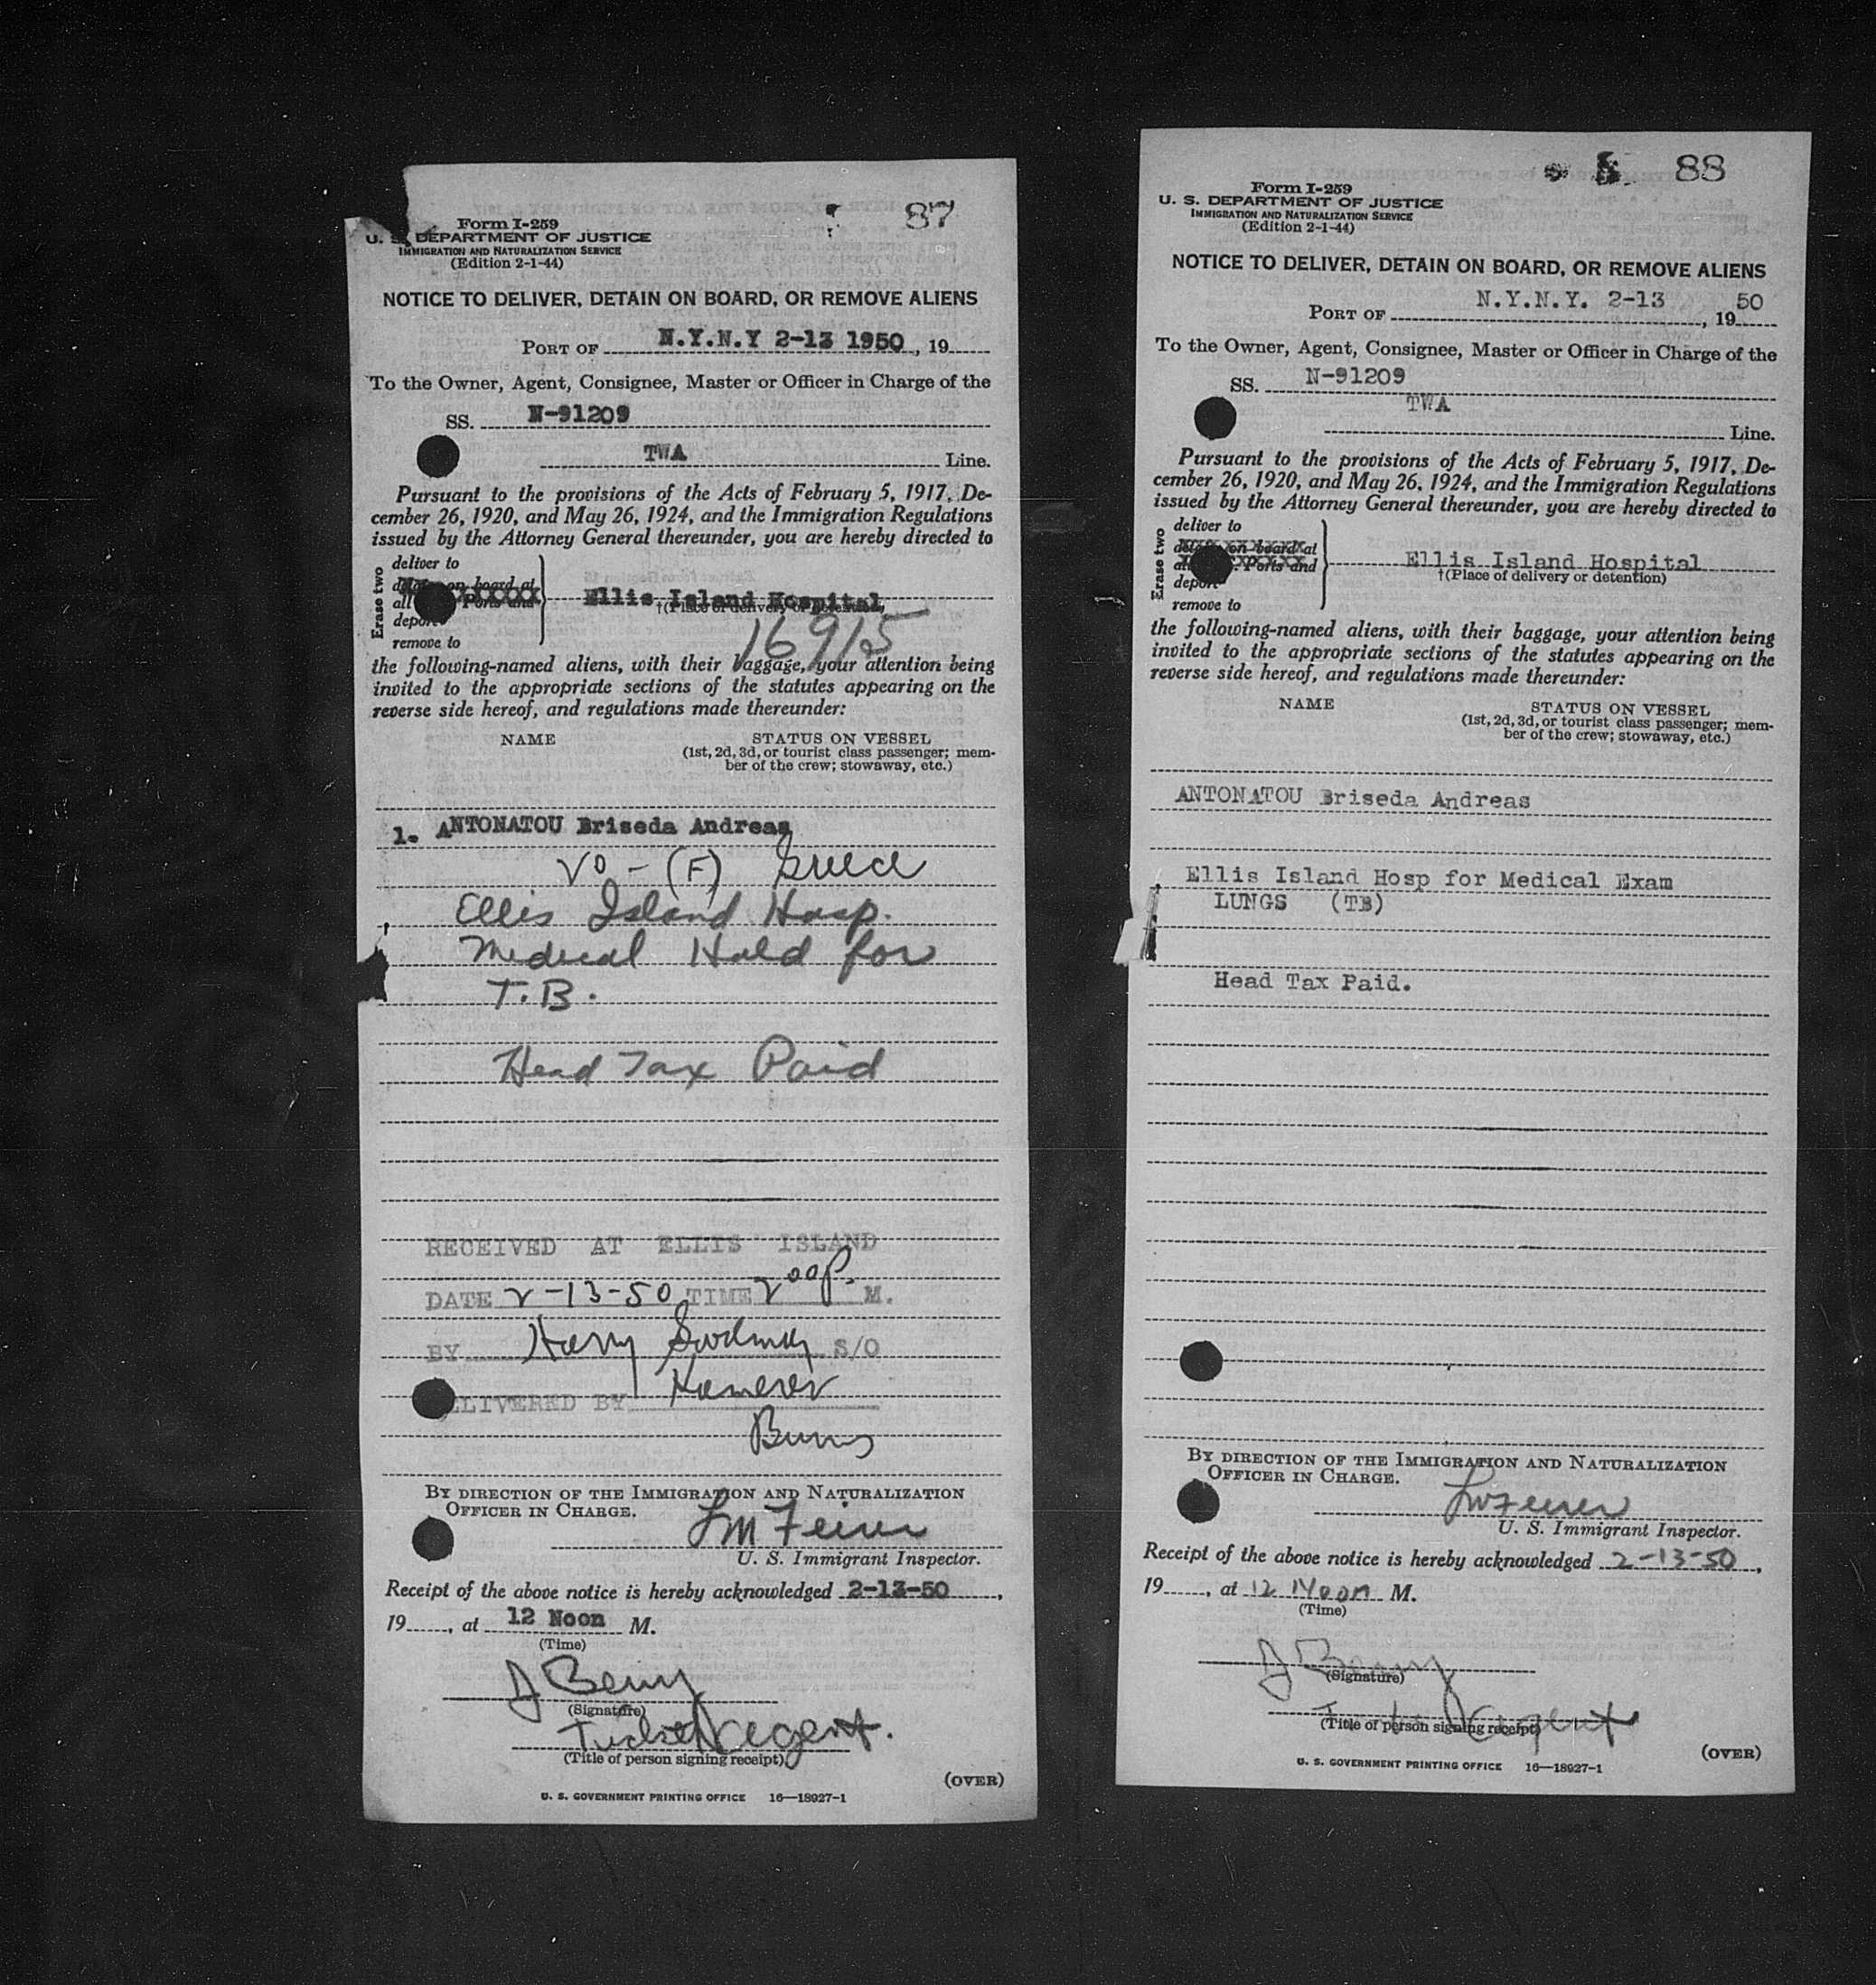 87
Form I-259
U. S. DEPARTMENT OF JUSTICE
IMMIGRATION AND NATURALIZATION SERVICE
(Edition 2-1-44)
NOTICE TO DELIVER, DETAIN ON BOARD, OR REMOVE ALIENS
PORT OF N.Y.N.Y 2-13 1950, 19
To the Owner, Agent, Consignee, Master or Officer in Charge of the
SS. N-91209
TWA Line.
Pursuant to the provisions of the Acts of February 5, 1917, De-
cember 26, 1920, and May 26, 1924, and the Immigration Regulations
issued by the Attorney General thereunder, you are hereby directed to
Erase two
deliver to
on board at
all Ports and
deport
remove to
Ellis Island Hospital
†(Place of delivery or detention)
16915
the following-named aliens, with their baggage, your attention being
invited to the appropriate sections of the statutes appearing on the
reverse side hereof, and regulations made thereunder:
NAME STATUS ON VESSEL
(1st, 2d, 3d, or tourist class passenger; mem-
ber of the crew; stowaway, etc.)
1. ANTONATOU Briseda Andreas
20 - (F) Greece
Ellis Island Hosp.
Medical Hold for
T.B.
Head Tax Paid
RECEIVED AT ELLIS ISLAND
DATE 2-13-50 TIME 2 00 P. M.
BY Harry S/O
LIVERED BY
Burns
BY DIRECTION OF THE IMMIGRATION AND NATURALIZATION
OFFICER IN CHARGE.
U. S. Immigrant Inspector.
Receipt of the above notice is hereby acknowledged 2-13-50,
19, at 12 Noon M.
(Time)
J Berry
(Signature)
Ticket Agent.
(Title of person signing receipt)
(OVER)
U. S. GOVERNMENT PRINTING OFFICE 16—18927-1
88
Form I-259
U. S. DEPARTMENT OF JUSTICE
IMMIGRATION AND NATURALIZATION SERVICE
(Edition 2-1-44)
NOTICE TO DELIVER, DETAIN ON BOARD, OR REMOVE ALIENS
PORT OF N.Y.N.Y. 2-13, 19 50
To the Owner, Agent, Consignee, Master or Officer in Charge of the
SS. N-91209
TWA
Line.
Pursuant to the provisions of the Acts of February 5, 1917, De-
cember 26, 1920, and May 26, 1924, and the Immigration Regulations
issued by the Attorney General thereunder, you are hereby directed to
Erase two
deliver to
on board at
Ports and
deport
remove to
Ellis Island Hospital
†(Place of delivery or detention)
the following-named aliens, with their baggage, your attention being
invited to the appropriate sections of the statutes appearing on the
reverse side hereof, and regulations made thereunder:
NAME STATUS ON VESSEL
(1st, 2d, 3d, or tourist class passenger; mem-
ber of the crew; stowaway, etc.)
ANTONATOU Briseda Andreas
Ellis Island Hosp for Medical Exam
LUNGS (TB)
Head Tax Paid.
BY DIRECTION OF THE IMMIGRATION AND NATURALIZATION
OFFICER IN CHARGE.
U. S. Immigrant Inspector.
Receipt of the above notice is hereby acknowledged 2-13-50,
19, at 12 Noon M.
(Time)
J Berry
(Signature)
Ticket Agent
(Title of person signing receipt)
(OVER)
U. S. GOVERNMENT PRINTING OFFICE 16—18927-1